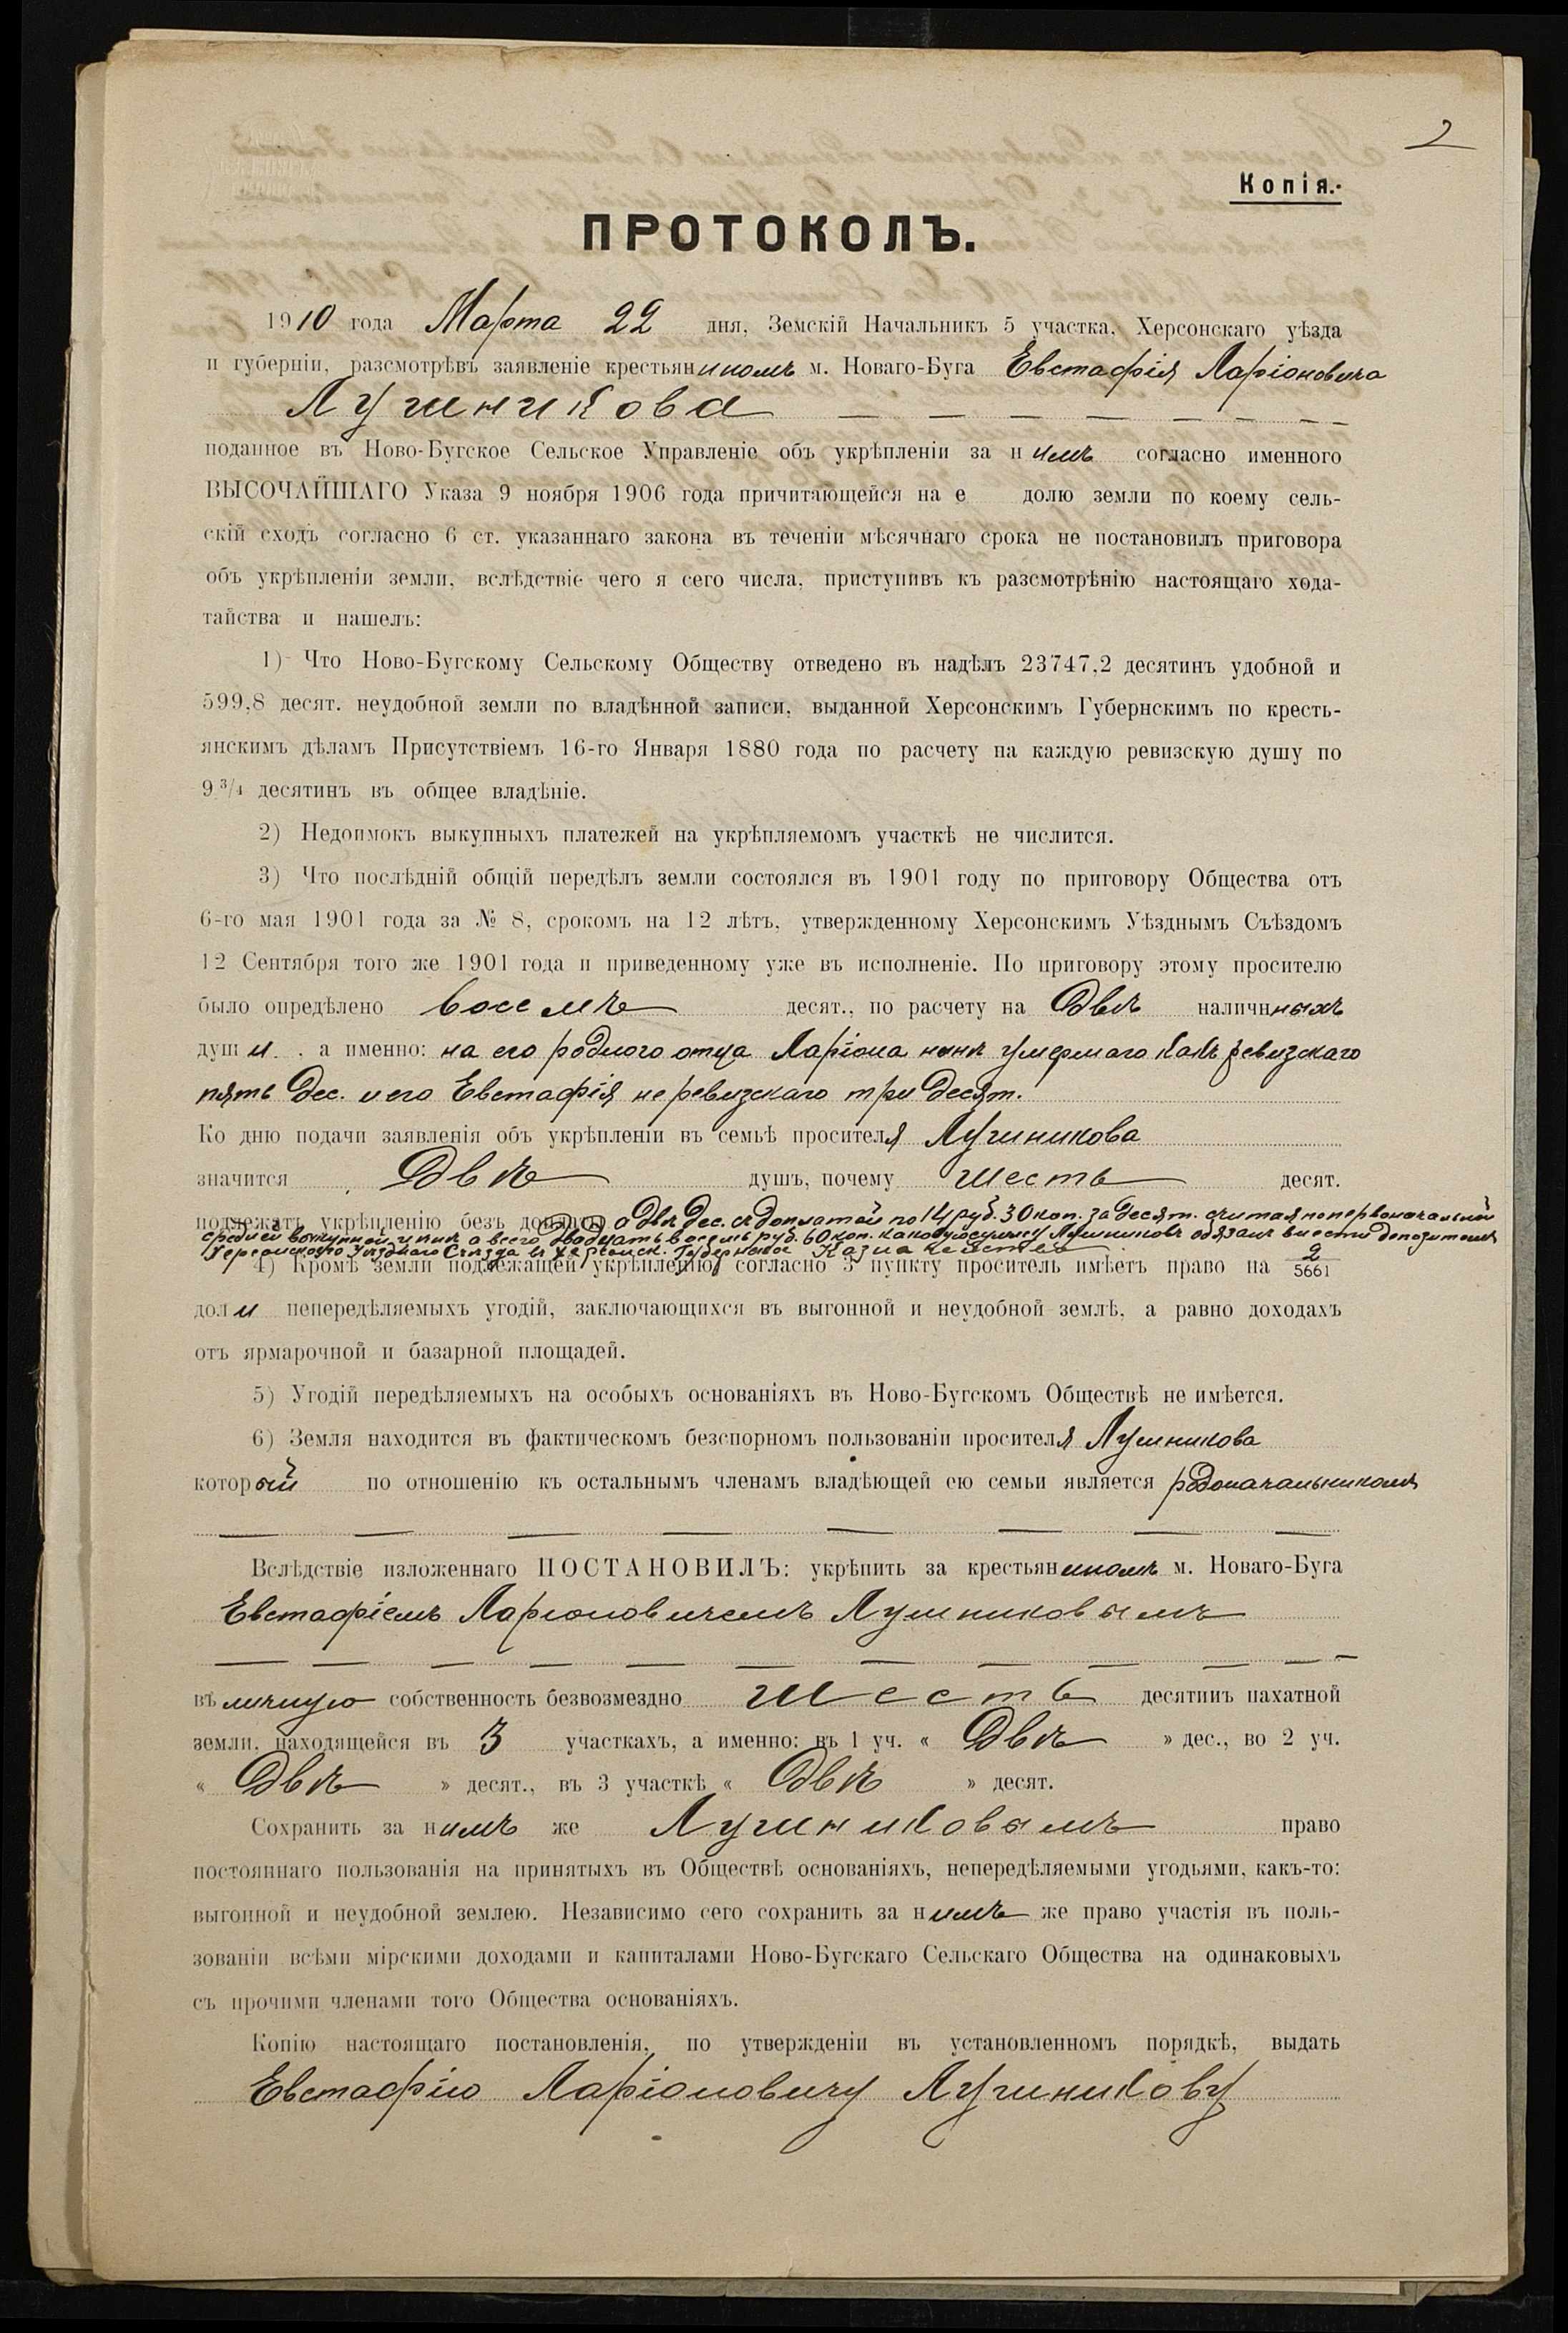 2
Копія.
ПРОТОКОЛЪ.
1910 года Марта 22 дня, Земскій Начальникъ 5 участка, Херсонскаго уѣзда
и губерніи, разсмотрѣвъ заявленіе крестьяниномъ м. Новаго-Буга Евстафія Ларіоновича
Лушникова
поданное въ Ново-Бугское Сельское Управленіе объ укрѣпленіи за нимъ согласно именного
ВЫСОЧАЙШАГО Указа 9 ноября 1906 года причитающейся на е долю земли по коему сель-
скій сходъ согласно 6 ст. указаннаго закона въ теченіи мѣсячнаго срока не постановилъ приговора
объ укрѣпленіи земли, вслѣдствіе чего я сего числа, приступивъ къ разсмотрѣнію настоящаго хода-
тайства и нашелъ:
1) Что Ново-Бугскому Сельскому Обществу отведено въ надѣлъ 23747,2 десятинъ удобной и
599,8 десят. неудобной земли по владѣнной записи, выданной Херсонскимъ Губернскимъ по кресть-
янскимъ дѣламъ Присутствіемъ 16-го Января 1880 года по расчету на каждую ревизскую душу по
9 3/4 десятинъ въ общее владѣніе.
2) Недоимокъ выкупныхъ платежей на укрѣпляемомъ участкѣ не числится.
3) Что послѣдній общій передѣлъ земли состоялся въ 1901 году по приговору Общества отъ
6-го мая 1901 года за № 8, срокомъ на 12 лѣтъ, утвержденному Херсонскимъ Уѣзднымъ Съѣздомъ
12 Сентября того же 1901 года и приведенному уже въ исполненіе. По приговору этому просителю
было опредѣлено восемь десят., по расчету на Двѣ наличнныхъ
души, а именно: на его родного отца Ларіона нынѣ умершаго какъ ревизскаго
пять дес. и его Евстафія не ревизскаго три десят.
Ко дню подачи заявленія объ укрѣпленіи въ семьѣ просителя Лушникова
значится Двѣ душъ, почему шесть десят.
подлежатъ укрѣпленію безъ доплаты а двѣ дес. съ доплатой по 14 руб. 30 коп. за десят. считая по первоначальной
средней выкупной цѣнѣ а всего двадцать восемь руб. 60 коп. каковую сумму Лушниковъ обязанъ внести депозитомъ
Херсонскаго Уѣзднаго Съѣзда въ Херсонск. Губернское Казначейство
4) Кромѣ земли подлежащей укрѣпленію согласно 3 пункту проситель имѣетъ право на 2/5661
доли непередѣляемыхъ угодій, заключающихся въ выгонной и неудобной землѣ, а равно доходахъ
отъ ярмарочной и базарной площадей.
5) Угодій передѣляемыхъ на особыхъ основаніяхъ въ Ново-Бугскомъ Обществѣ не имѣется.
6) Земля находится въ фактическомъ безспорномъ пользованіи просителя Лушникова
который по отношенію къ остальнымъ членамъ владѣющей ею семьи является родоначальникомъ
Вслѣдствіе изложеннаго ПОСТАНОВИЛЪ: укрѣпить за крестьяниномъ м. Новаго-Буга
Евстафіемъ Ларіоновичемъ Лушниковымъ
въ личную собственность безвозмездно шесть десятинъ пахатной
земли, находящейся въ 3 участкахъ, а именно: въ 1 уч. « Двѣ » дес., во 2 уч.
« Двѣ » десят., въ 3 участкѣ « Двѣ » десят.
Сохранить за нимъ же Лушниковымъ право
постояннаго пользованія на принятыхъ въ Обществѣ основаніяхъ, непередѣляемыми угодьями, какъ-то:
выгонной и неудобной землею. Независимо сего сохранить за нимъ же право участія въ поль-
зованіи всѣми мірскими доходами и капиталами Ново-Бугскаго Сельскаго Общества на одинаковыхъ
съ прочими членами того Общества основаніяхъ.
Копію настоящаго постановленія, по утвержденіи въ установленномъ порядкѣ, выдать
Евстафію Ларіоновичу Лушникову